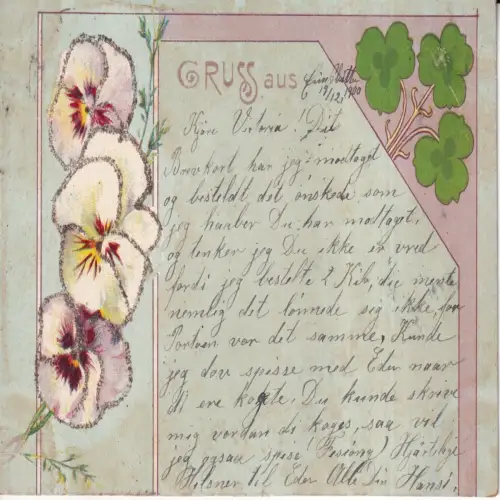 GRUSS aus
19/12, 1900
Kjöre Victoria! Dit
Brevkort har jeg modtaget
og bestildt det önskede som
jeg haaber Du har modtaget,
og tenker jeg Du ikke er vred
fordi jeg bestilte 2 Kilo, de mente
nemlig det lönnede sig ikke, for
Portoen var det samme, Kunde
jeg dov spisse med Eder naar
di ere kogte. Du kunde skrive
mig vordan di koges, saa vil
jeg ogsaa spise! Hjärtelige
Hilsner til Eder Alle Din Hansi.